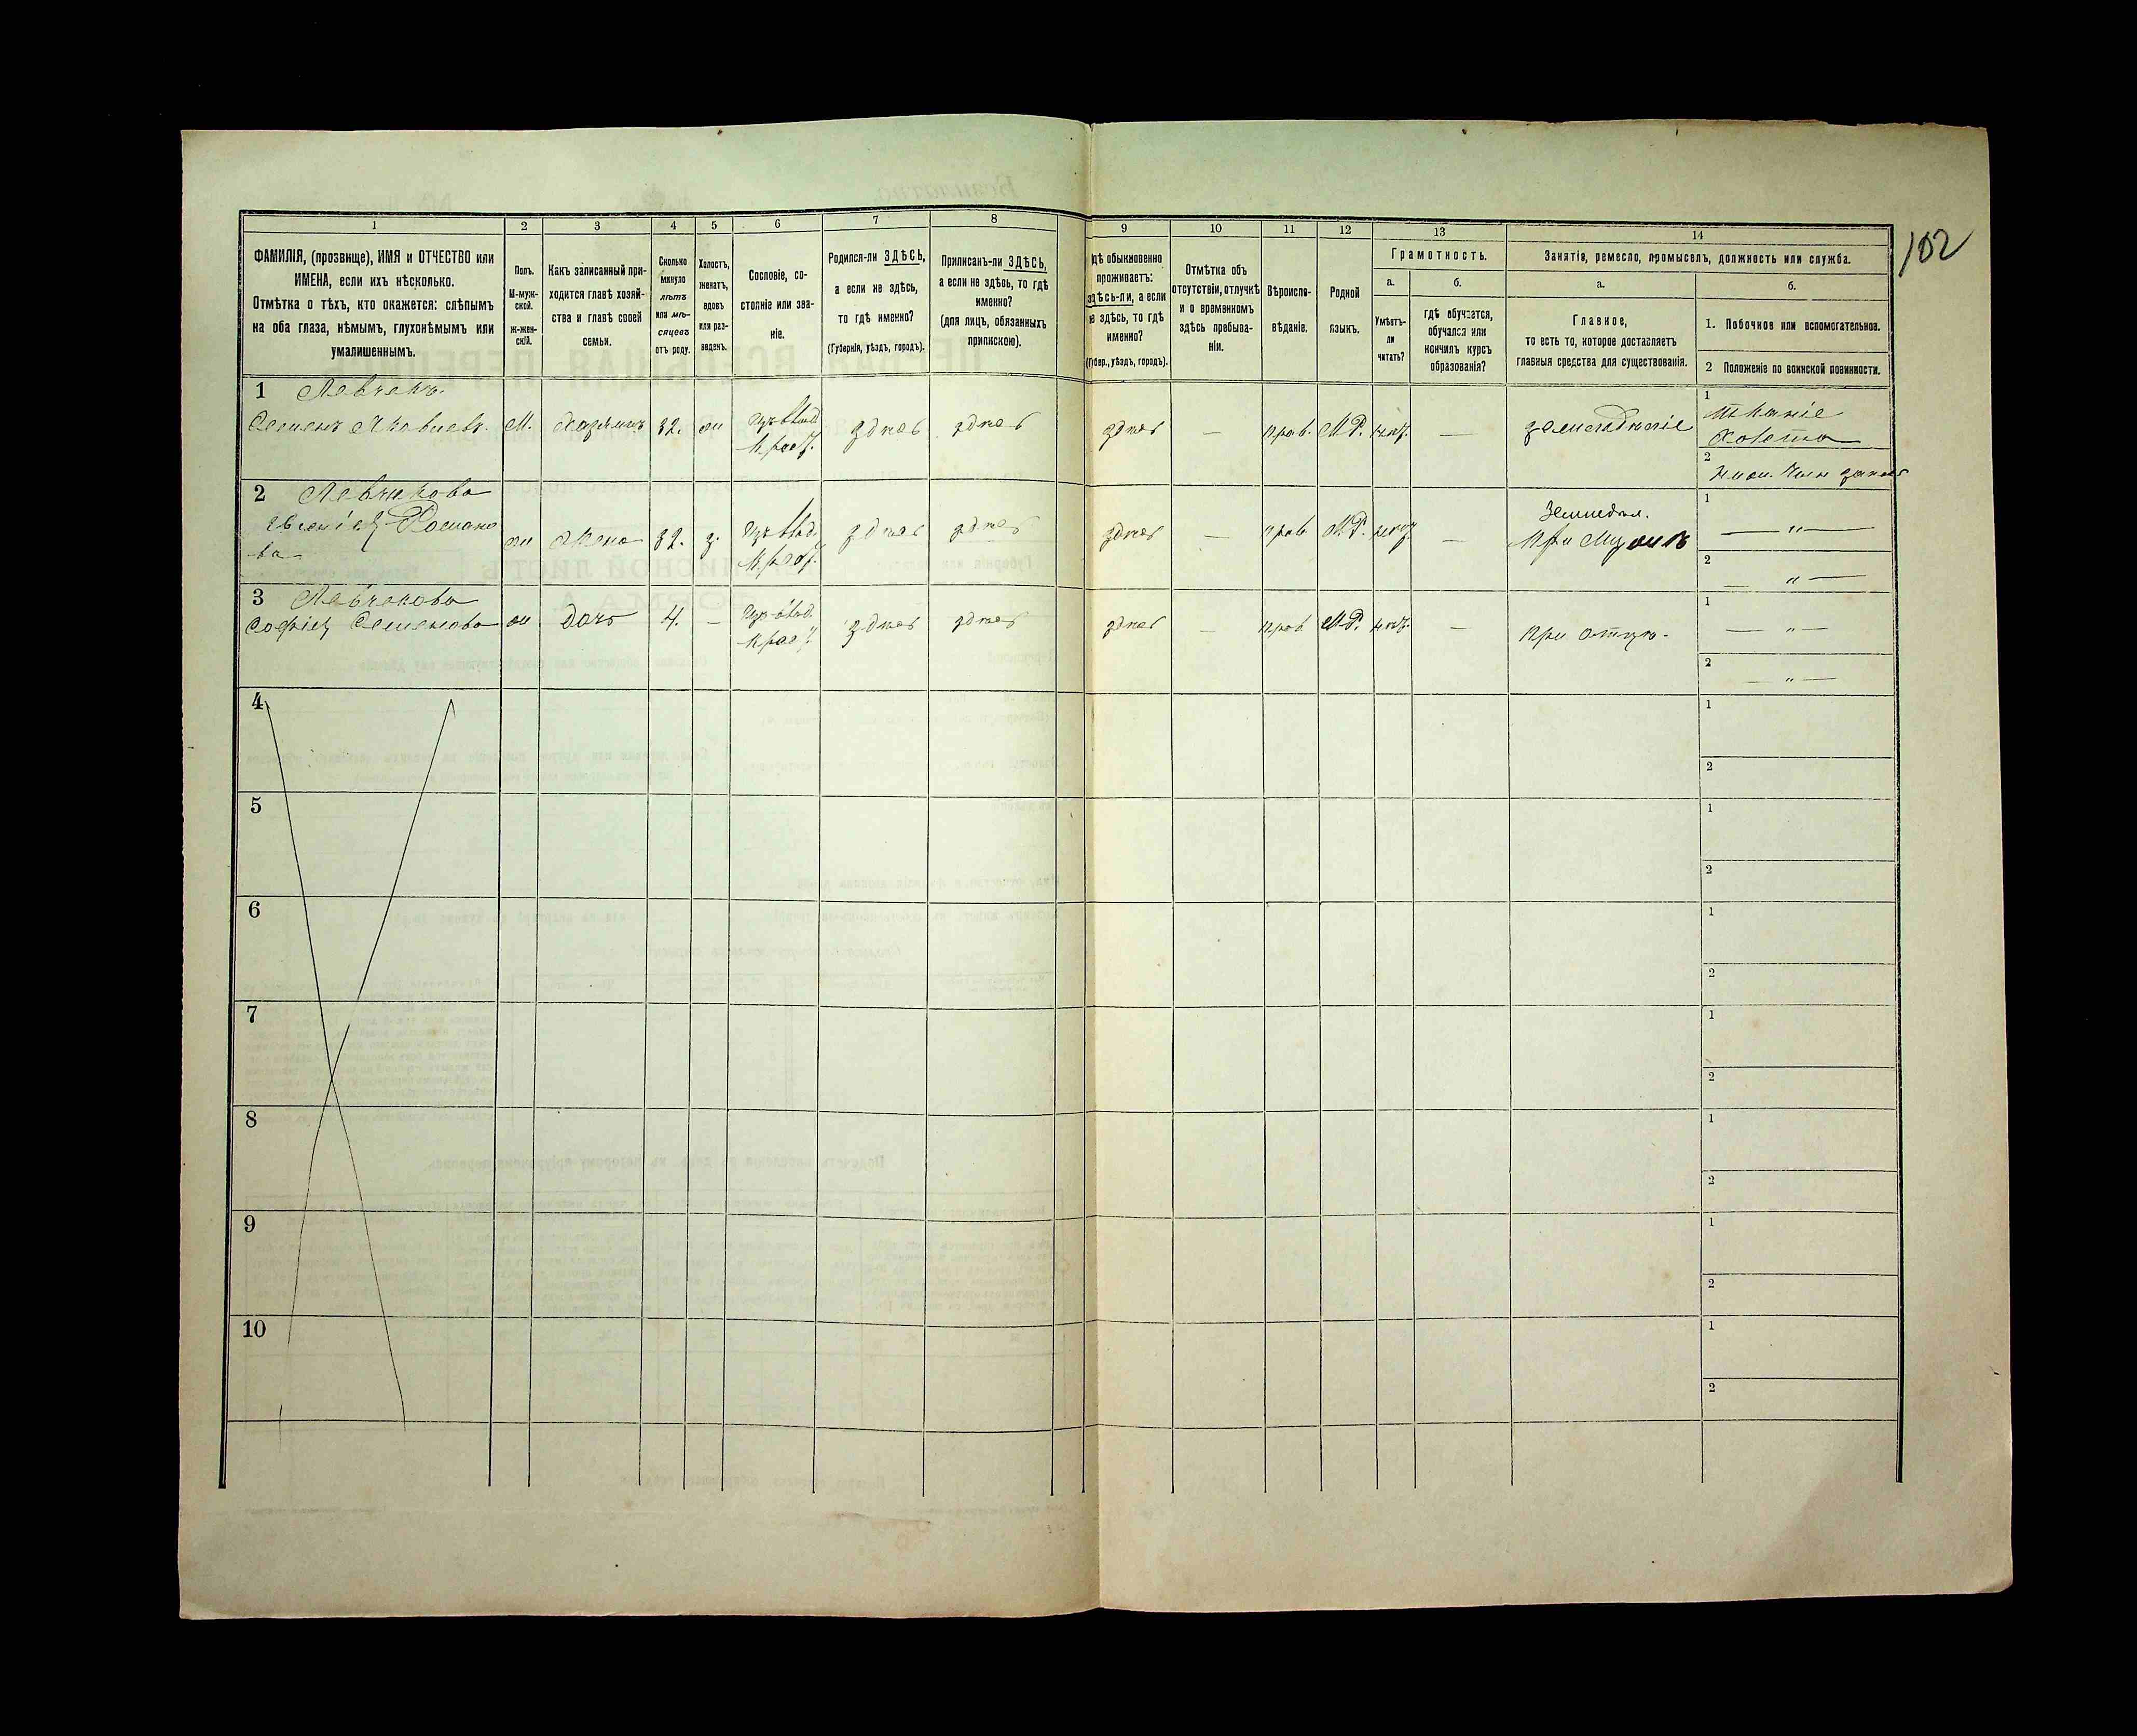 102
1
2
3
4
5
6
7
8
9
10
11
12
13
14
ФАМИЛІЯ, (прозвище), ИМЯ и ОТЧЕСТВО или
ИМЕНА, если ихъ нѣсколько.
Отмѣтка о тѣхъ, кто окажется: слѣпымъ
на оба глаза, нѣмымъ, глухонѣмымъ или
умалишеннымъ.
Полъ.
М-муж-
ской.
ж-жен-
скій.
Какъ записанный при-
ходится главѣ хозяй-
ства и главѣ своей
семьи.
Сколько
минуло
лѣтъ
или мѣ-
сяцевъ
отъ роду.
Холостъ,
женатъ,
вдовъ
или раз-
веденъ.
Сословіе, со-
стояніе или зва-
ніе.
Родился-ли ЗДѢСЬ,
а если не здѣсь,
то гдѣ именно?
(Губернія, уѣздъ, городъ).
Приписанъ-ли ЗДѢСЬ,
а если не здѣсь, то гдѣ
именно?
(для лицъ, обязанныхъ
припискою).
гдѣ обыкновенно
проживаетъ:
здѣсь-ли, а если
не здѣсь, то гдѣ
именно?
(Губер., уѣздъ, городъ).
Отмѣтка объ
отсутствіи, отлучкѣ
и о временномъ
здѣсь пребыва-
ніи.
Вѣроиспо-
вѣданіе.
Родной
языкъ.
Грамотность.
а.
Умѣетъ-
ли
читать?
б.
гдѣ обучается,
обучался или
кончилъ курсъ
образованія?
Занятія, ремесло, промыселъ, должность или служба.
а.
Главное,
то есть то, которое доставляетъ
главныя средства для существованія.
б.
1. Побочное или вспомогательное.
2 Положеніе по воинской повинности.
1 Левченъ
Семенъ Яковлевъ. М. Хозяинъ 32. ж Кр. здесь здесь здесь — прав. М.Р. нѣт. — земледѣліе
1 тканіе
холста
2
2 Левченкова
Романо
ва ж жена 32. з. здесь здесь здесь — прав. М.Р. нѣт. — Земледѣл.
При мужѣ
1 — " —
2 — " —
3 Левченкова
Софія Семенова ж дочь 4. — здесь здесь здесь — прав. М.Р. нѣт. — при отцѣ.
1 — " —
2 — " —
4
1
2
5
1
2
6
1
2
7
1
2
8
1
2
9
1
2
10
1
2